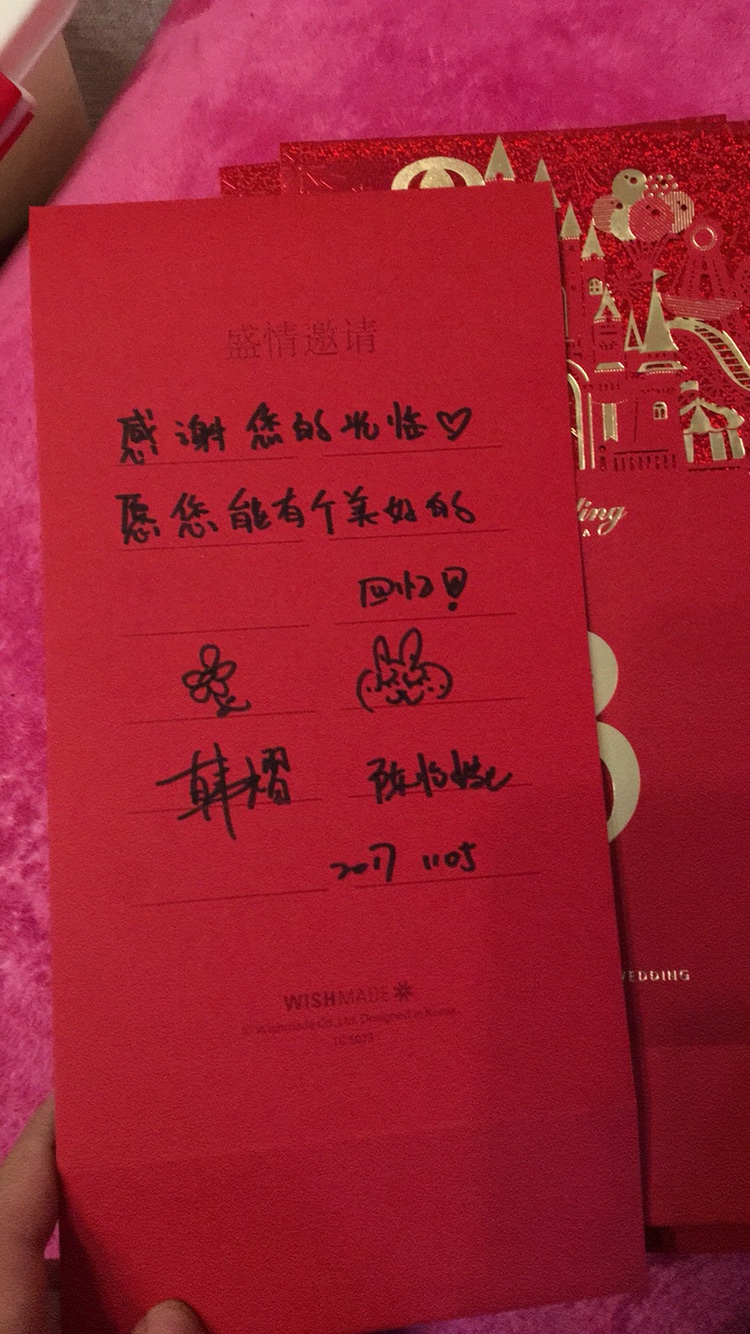 盛情邀请
感谢您的光临♡
愿您能有个美好的
回忆!
韩榴 陈怡
2017 1105
WISHMADE
© Wishmade Co., Ltd. Designed in Korea
TC 5073
ding
WEDDING